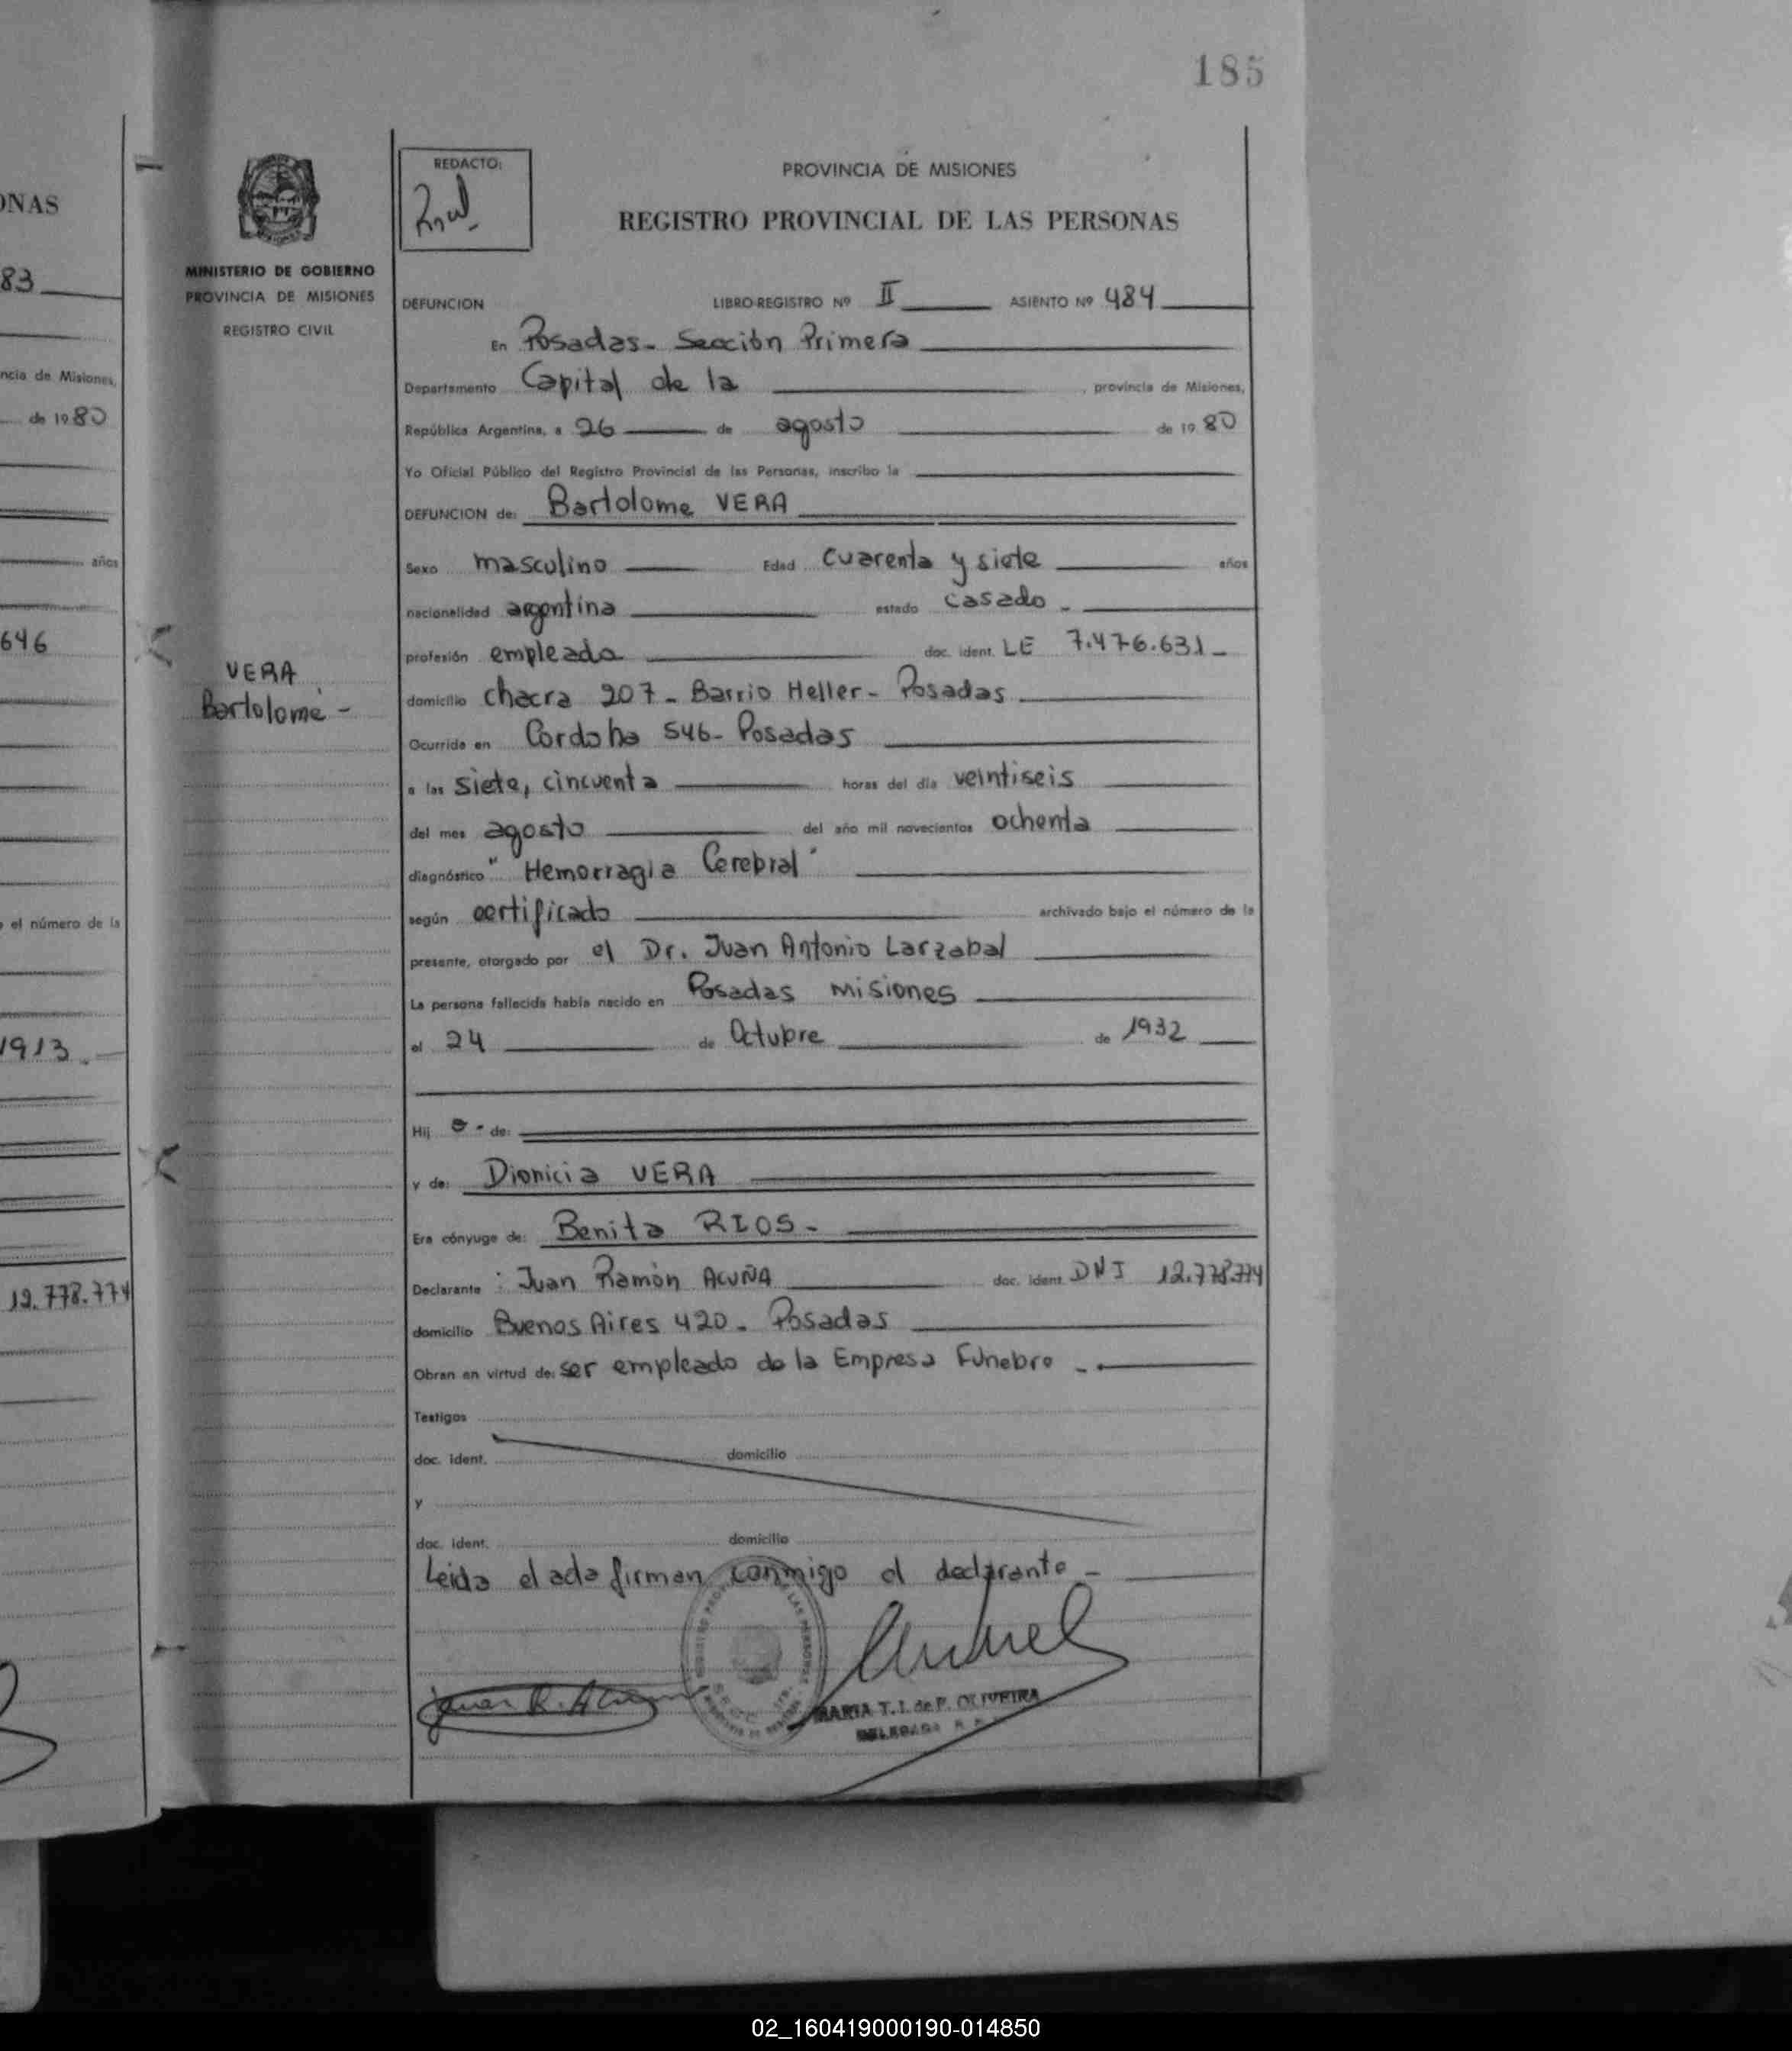 185
ONAS
83
ncia de Misiones,
de 1980
años
646
el número de la
1913.
12.778.774
MINISTERIO DE GOBIERNO
PROVINCIA DE MISIONES
REGISTRO CIVIL
VERA
Bartolomé -
REDACTO:
PROVINCIA DE MISIONES
REGISTRO PROVINCIAL DE LAS PERSONAS
DEFUNCION LIBRO-REGISTRO Nº II ASIENTO Nº 484
En Posadas - Sección Primera
Departamento Capital de la , provincia de Misiones,
República Argentina, a 26 de agosto de 1980
Yo Oficial Público del Registro Provincial de las Personas, inscribo la
DEFUNCION de: Bartolome VERA
Sexo masculino Edad cuarenta y siete años
nacionalidad argentina estado casado -
profesión empleado doc. ident. LE 7.476.631 -
domicilio chacra 207 - Barrio Heller - Posadas
Ocurrida en Cordoba 546 - Posadas
a las siete, cincuenta horas del día veintiseis
del mes agosto del año mil novecientos ochenta
diagnóstico " Hemorragia Cerebral "
según certificado archivado bajo el número de la
presente, otorgado por el Dr. Juan Antonio Larzabal
La persona fallecida había nacido en Posadas Misiones
el 24 de Octubre de 1932
Hij o - de:
y de: Dionicia VERA
Era cónyuge de: Benita RIOS -
Declarante : Juan Ramón ACUÑA doc. ident. DNI 12.778.774
domicilio Buenos Aires 420 - Posadas
Obran en virtud de: ser empleado de la Empresa Fúnebre -
Testigos
doc. ident. domicilio
y
doc. ident. domicilio
Leida el acta firman conmigo el declarante -
Juan R. Acuña
MARIA T. I. de P. OLIVEIRA
DELEGADA
02_160419000190-014850